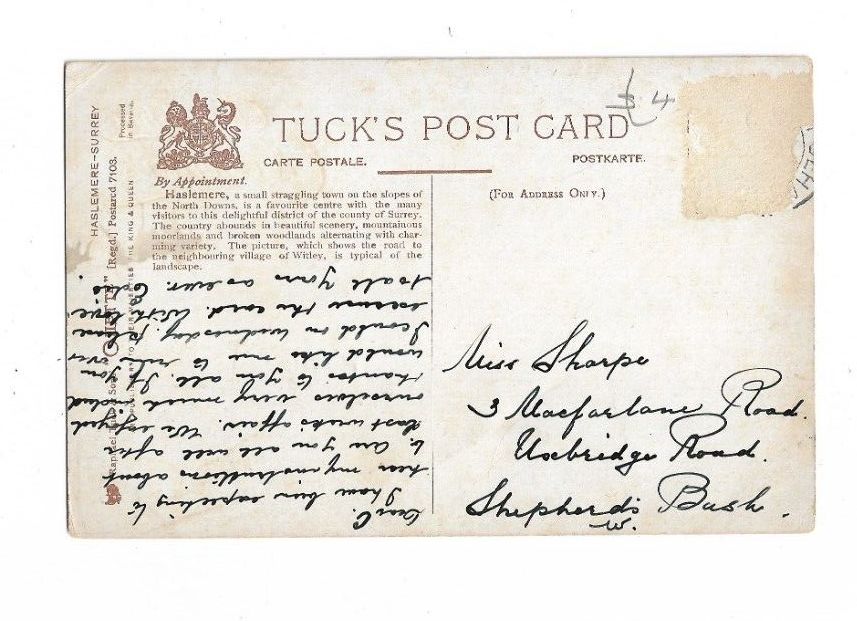 TUCK'S POST CARD
CARTE POSTALE.
POSTKARTE.
By Appointment.
(FOR ADDRESS ONLY.)
Haslemere, a small straggling town on the slopes of
the North Downs, is a favourite centre with the many
visitors to this delightful district of the county of Surrey.
The country abounds in beautiful scenery, mountainous
moorlands and broken woodlands alternating with char-
ming variety. The picture, which shows the road to
the neighbouring village of Witley, is typical of the
landscape.
HASLEMERE–SURREY
Processed
in Bavaria.
[Regd.] Postcard 7103.
THE KING & QUEEN
Dear C.
I have been expecting to
hear my instructions about
to. Are you all well after
last weeks affair. We enjoyed
ourselves very much
thanks to you all. If you
would like me to run over
I could on Wednesday. Please
excuse the card. With love
to all yours as ever.
4
Miss Sharpe
3 Macfarlane Road.
Uxbridge Road.
Shepherd's Bush.
W.